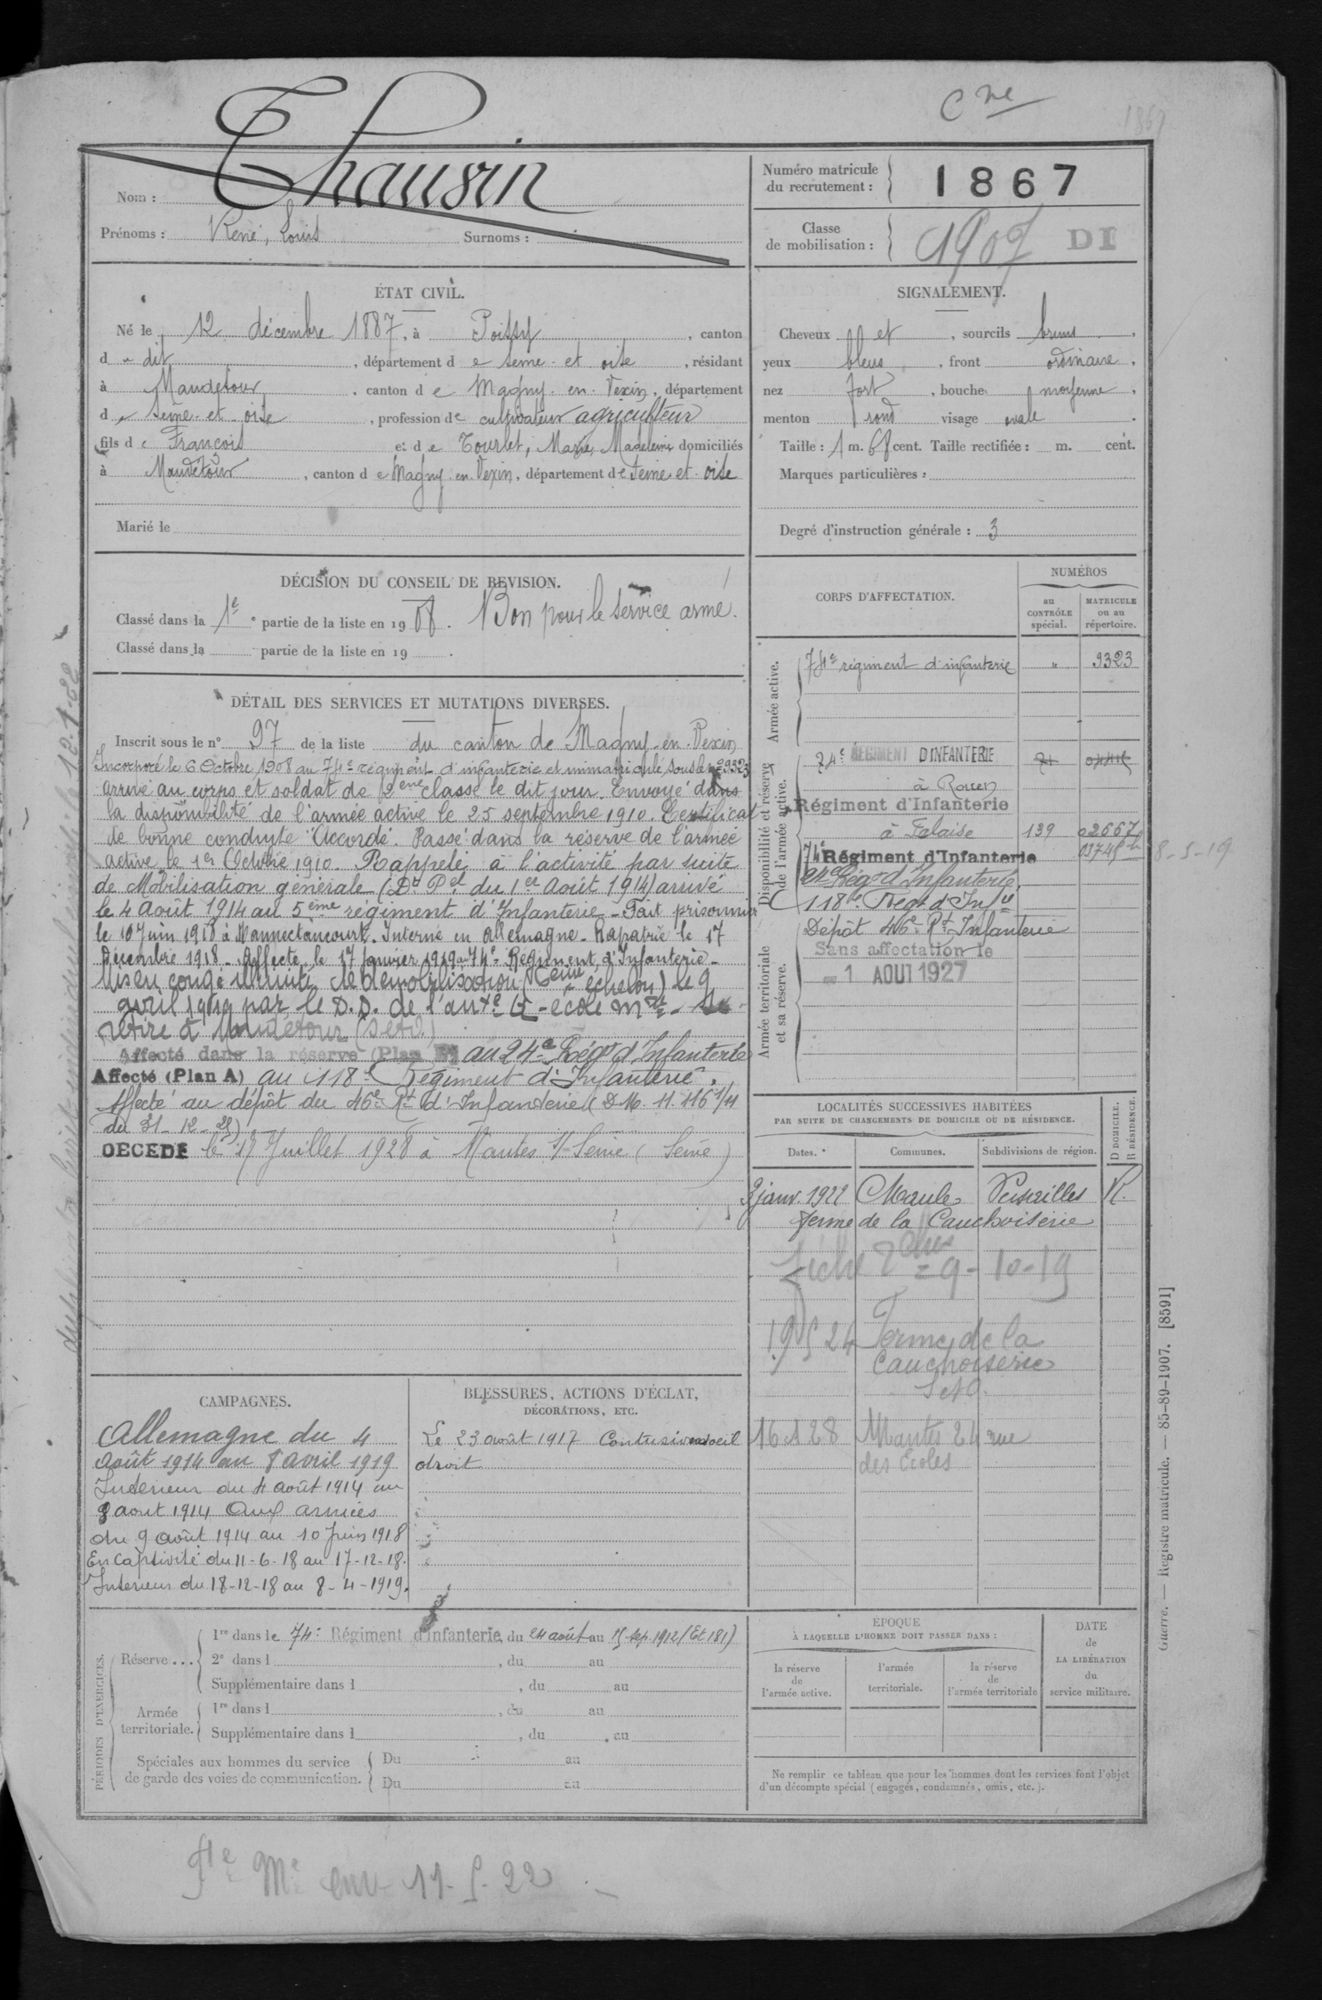 Cne
1867
Nom : Thausin
Prénoms : René, Louis Surnoms :
Numéro matricule
du recrutement : 1867
Classe
de mobilisation : 1907 DI
ÉTAT CIVIL.
Né le 12 décembre 1887, à Poissy, canton
d u dit, département de Seine-et-oise, résidant
à Maudétour, canton de Magny-en-Vexin, département
de Seine-et-oise, profession de cultivateur agriculteur
fils de François et de Tourlet, Marie, Madeleine domiciliés
à Maudétour, canton de Magny-en-Vexin, département de Seine-et-oise
Marié le
SIGNALEMENT.
Cheveux et, sourcils bruns,
yeux bleus, front ordinaire,
nez fort, bouche moyenne,
menton rond visage ovale.
Taille : 1 m. 68 cent. Taille rectifiée : m. cent.
Marques particulières :
Degré d'instruction générale : 3
DÉCISION DU CONSEIL DE REVISION.
Classé dans la 1e partie de la liste en 1908. Bon pour le service armé.
Classé dans la partie de la liste en 19 .
DÉTAIL DES SERVICES ET MUTATIONS DIVERSES.
Inscrit sous le n° 97 de la liste du canton de Magny-en-Vexin
Incorporé le 6 Octobre 1908 au 74e régiment d'infanterie et immatriculé sous le n° 9323
arrivé au corps et soldat de 2ème classe le dit jour. Envoyé dans
la disponibilité de l'armée active le 25 septembre 1910. Certificat
de bonne conduite Accordé. Passé dans la réserve de l'armée
active le 1er Octobre 1910. Rappelé à l'activité par suite
de Mobilisation générale (Dt Pel du 1er Août 1914) arrivé
le 4 août 1914 au 5ème régiment d'Infanterie - Fait prisonnier
le 10 Juin 1918 à Interné en Allemagne - Rapatrié le 17
Décembre 1918 - Affecté le 17 janvier 1919 au 74e Régiment d'Infanterie -
Mis en congé illimité de Démobilisation echelon) le 9
avril 1919 par le D.D. de l'au - école - Se
retire à Maudétour (S et O.)
Affecté dans la réserve (Plan au 24e Régt d'Infanterie
Affecté (Plan A) au 118e Régiment d'Infanterie.
Affecté au dépôt du 46e Rt d'Infanterie (D.M. 11.116 1/11
du 31-12-25)
DÉCÉDÉ le 17 Juillet 1928 à Mantes S/-Seine (Seine)
CORPS D'AFFECTATION.
NUMÉROS
au
CONTRÔLE
spécial.
MATRICULE
ou au
répertoire.
Armée active.
74e régiment d'infanterie " 9323
Disponibilité et réserve
de l'armée active.
24e RÉGIMENT D'INFANTERIE
à Rouen
Régiment d'Infanterie
à Falaise 139 02667
74e Régiment d'Infanterie 8-5-19
24e Régt d'Infanterie
118e Régt d'Infie
Armée territoriale
et sa réserve.
Dépôt 46e Rt Infanterie
Sans affectation le
1 AOUT 1927
LOCALITÉS SUCCESSIVES HABITÉES
PAR SUITE DE CHANGEMENTS DE DOMICILE OU DE RÉSIDENCE.
Dates. Communes. Subdivisions de région. D DOMICILE. R RÉSIDENCE.
2 janv. 1922 Maule Versailles R.
Ferme de la Cauchoiserie
9-10-19
24 Ferme de la
Cauchoiserie
S et O.
16 1 28 Mantes 24 rue
des Ecoles
CAMPAGNES.
Allemagne du 4
août 1914 au 8 avril 1919
Intérieur du 4 août 1914 au
8 aout 1914 Aux armées
du 9 août 1914 au 10 Juin 1918
En Captivité du 11-6-18 au 17-12-18.
Intérieur du 18-12-18 au 8-4-1919.
BLESSURES, ACTIONS D'ÉCLAT,
DÉCORATIONS, ETC.
Le 23 août 1917 Contusion oeil
droit
PÉRIODES D'EXERCICES.
Réserve ...
1re dans le 74e Régiment d'Infanterie, du 24 août au 1912
2e dans l , du au
Supplémentaire dans l , du au
Armée
territoriale.
1re dans l , du au
Supplémentaire dans l , du au
Spéciales aux hommes du service
de garde des voies de communication.
Du au
Du au
ÉPOQUE
À LAQUELLE L'HOMME DOIT PASSER DANS :
la réserve
de
l'armée active.
l'armée
territoriale.
la réserve
de
l'armée territoriale
DATE
de
LA LIBÉRATION
du
service militaire.
Ne remplir ce tableau que pour les hommes dont les services font l'objet
d'un décompte spécial (engagés, condamnés, omis, etc.).
Guerre. — Registre matricule. — 85-89-1907. [8591]
env 11-5-22